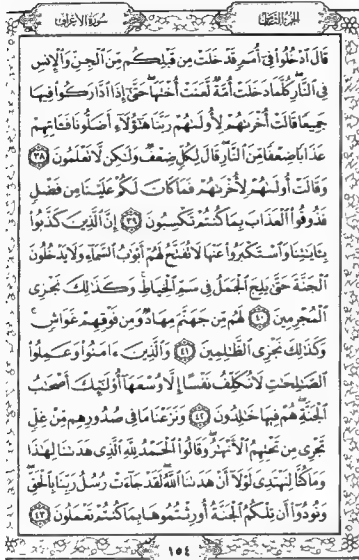 سورة الأعراف
الجزء الثامن
قَالَ ٱدْخُلُوا۟ فِىٓ أُمَمٍ قَدْ خَلَتْ مِن قَبْلِكُم مِّنَ ٱلْجِنِّ وَٱلْإِنسِ
فِى ٱلنَّارِ كُلَّمَا دَخَلَتْ أُمَّةٌ لَّعَنَتْ أُخْتَهَا حَتَّىٰٓ إِذَا ٱدَّارَكُوا۟ فِيهَا
جَمِيعًا قَالَتْ أُخْرَىٰهُمْ لِأُولَىٰهُمْ رَبَّنَا هَٰٓؤُلَآءِ أَضَلُّونَا فَـَٔاتِهِمْ
عَذَابًا ضِعْفًا مِّنَ ٱلنَّارِ قَالَ لِكُلٍّ ضِعْفٌ وَلَٰكِن لَّا تَعْلَمُونَ ٣٨
وَقَالَتْ أُولَىٰهُمْ لِأُخْرَىٰهُمْ فَمَا كَانَ لَكُمْ عَلَيْنَا مِن فَضْلٍ
فَذُوقُوا۟ ٱلْعَذَابَ بِمَا كُنتُمْ تَكْسِبُونَ ٣٩ إِنَّ ٱلَّذِينَ كَذَّبُوا۟
بِـَٔايَٰتِنَا وَٱسْتَكْبَرُوا۟ عَنْهَا لَا تُفَتَّحُ لَهُمْ أَبْوَٰبُ ٱلسَّمَآءِ وَلَا يَدْخُلُونَ
ٱلْجَنَّةَ حَتَّىٰ يَلِجَ ٱلْجَمَلُ فِى سَمِّ ٱلْخِيَاطِ وَكَذَٰلِكَ نَجْزِى
ٱلْمُجْرِمِينَ ٤٠ لَهُم مِّن جَهَنَّمَ مِهَادٌ وَمِن فَوْقِهِمْ غَوَاشٍ
وَكَذَٰلِكَ نَجْزِى ٱلظَّٰلِمِينَ ٤١ وَٱلَّذِينَ ءَامَنُوا۟ وَعَمِلُوا۟
ٱلصَّٰلِحَٰتِ لَا نُكَلِّفُ نَفْسًا إِلَّا وُسْعَهَآ أُو۟لَٰٓئِكَ أَصْحَٰبُ
ٱلْجَنَّةِ هُمْ فِيهَا خَٰلِدُونَ ٤٢ وَنَزَعْنَا مَا فِى صُدُورِهِم مِّنْ غِلٍّ
تَجْرِى مِن تَحْتِهِمُ ٱلْأَنْهَٰرُ وَقَالُوا۟ ٱلْحَمْدُ لِلَّهِ ٱلَّذِى هَدَىٰنَا لِهَٰذَا
وَمَا كُنَّا لِنَهْتَدِىَ لَوْلَآ أَنْ هَدَىٰنَا ٱللَّهُ لَقَدْ جَآءَتْ رُسُلُ رَبِّنَا بِٱلْحَقِّ
وَنُودُوٓا۟ أَن تِلْكُمُ ٱلْجَنَّةُ أُورِثْتُمُوهَا بِمَا كُنتُمْ تَعْمَلُونَ ٤٣
١٥٤